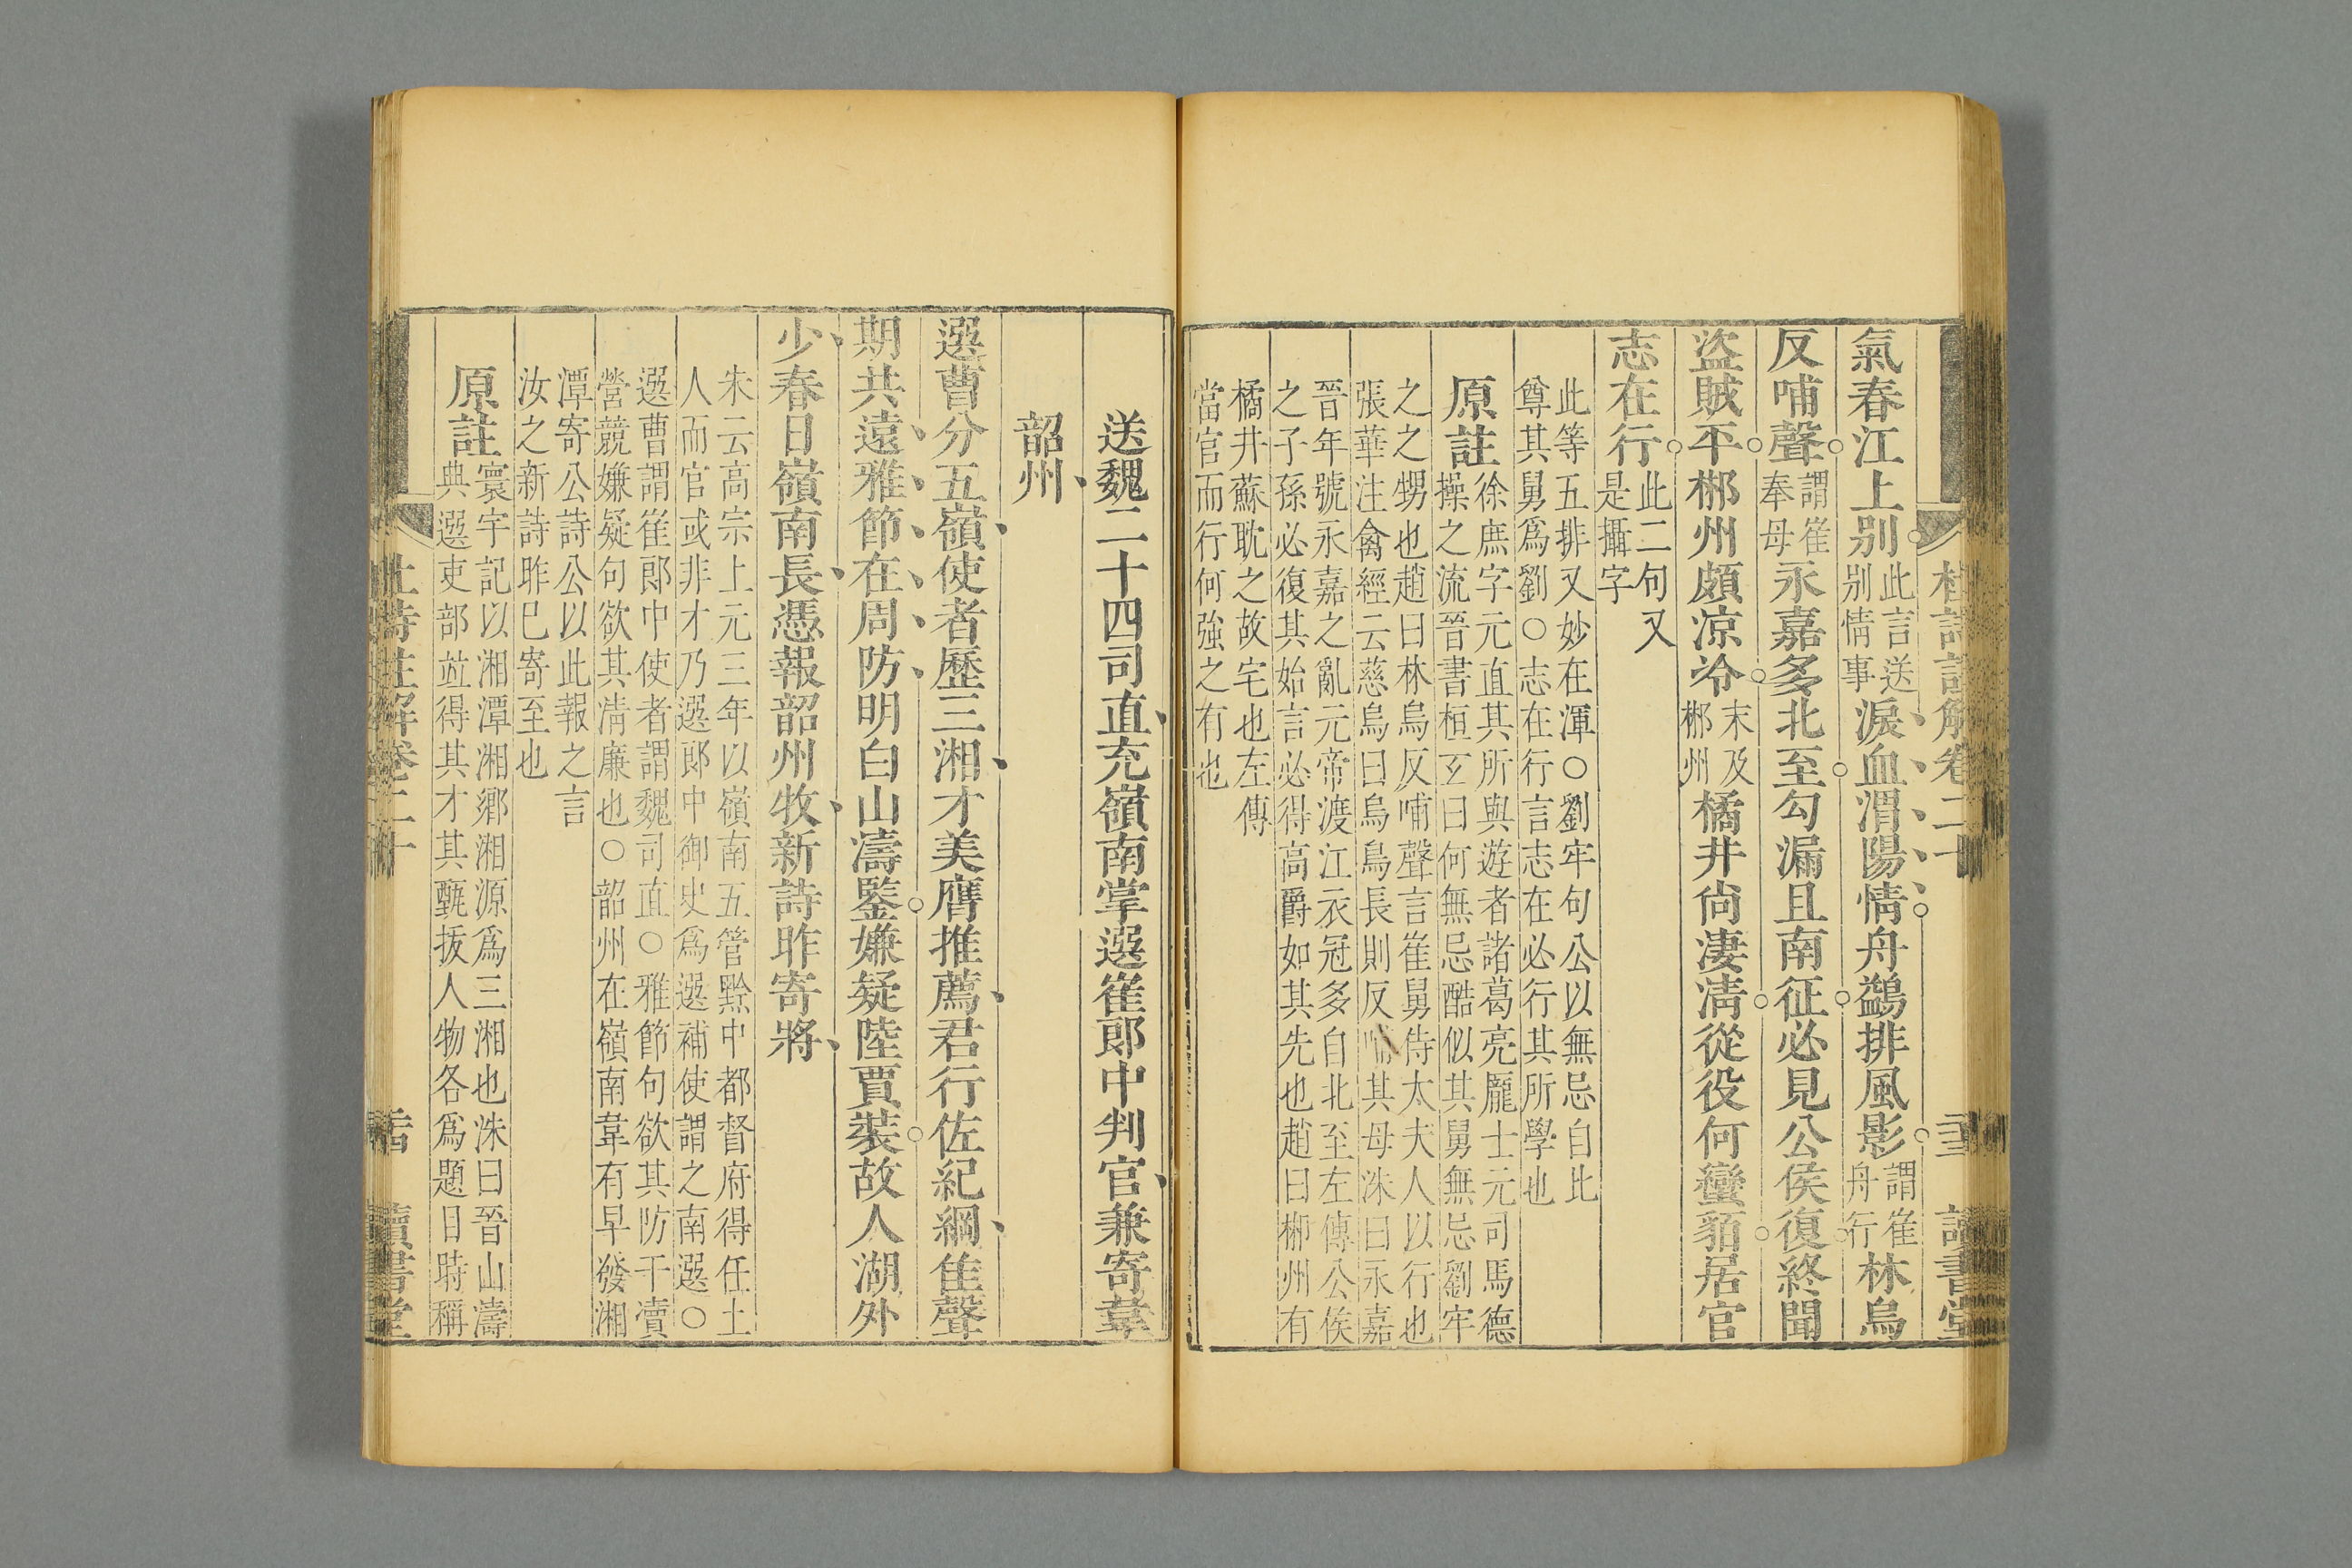 氣春江上别此言送别情事淚血渭陽情舟鷁排風影謂崔舟行林烏
反哺聲謂崔奉母永嘉多北至勾漏且南征必見公侯復終聞
盜賊平郴州頗凉冷末及郴州橘井尙凄清從役何蠻貊居官
志在行此二句又是攝字
此等五排又妙在渾○劉牢句公以無忌自比
尊其舅爲劉○志在行言志在必行其所學也
原註徐庶字元直其所與遊者諸葛亮龐士元司馬德
操之流晉書桓玄曰何無忌酷似其舅無忌劉牢
之之甥也趙曰林烏反哺聲言崔舅侍太夫人以行也
張華注禽經云慈烏曰烏鳥長則反哺其母洙曰永嘉
晉年號永嘉之亂元帝渡江衣冠多自北至左傳公侯
之子孫必復其始言必得高爵如其先也趙曰郴州有
橘井蘇耽之故宅也左傳
當官而行何強之有也
送魏二十四司直充嶺南掌選崔郎中判官兼寄韋
韶州
選曹分五嶺使者歷三湘才美膺推薦君行佐紀綱隹聲
期共遠雅節在周防明白山濤鑒嫌疑陸賈裝故人湖外
少春日嶺南長憑報韶州牧新詩昨寄將
朱云高宗上元三年以嶺南五管黔中都督府得任土
人而官或非才乃選郎中御史爲選補使謂之南選○
選曹謂崔郎中使者謂魏司直○雅節句欲其防干瀆
營競嫌疑句欲其清廉也○韶州在嶺南韋有早發湘
潭寄公詩公以此報之言
汝之新詩昨巳寄至也
原註寰宇記以湘潭湘鄉湘源爲三湘也洙曰晉山濤
典選吏部竝得其才其甄拔人物各爲題目時稱
杜詩註解卷二十
讀書堂